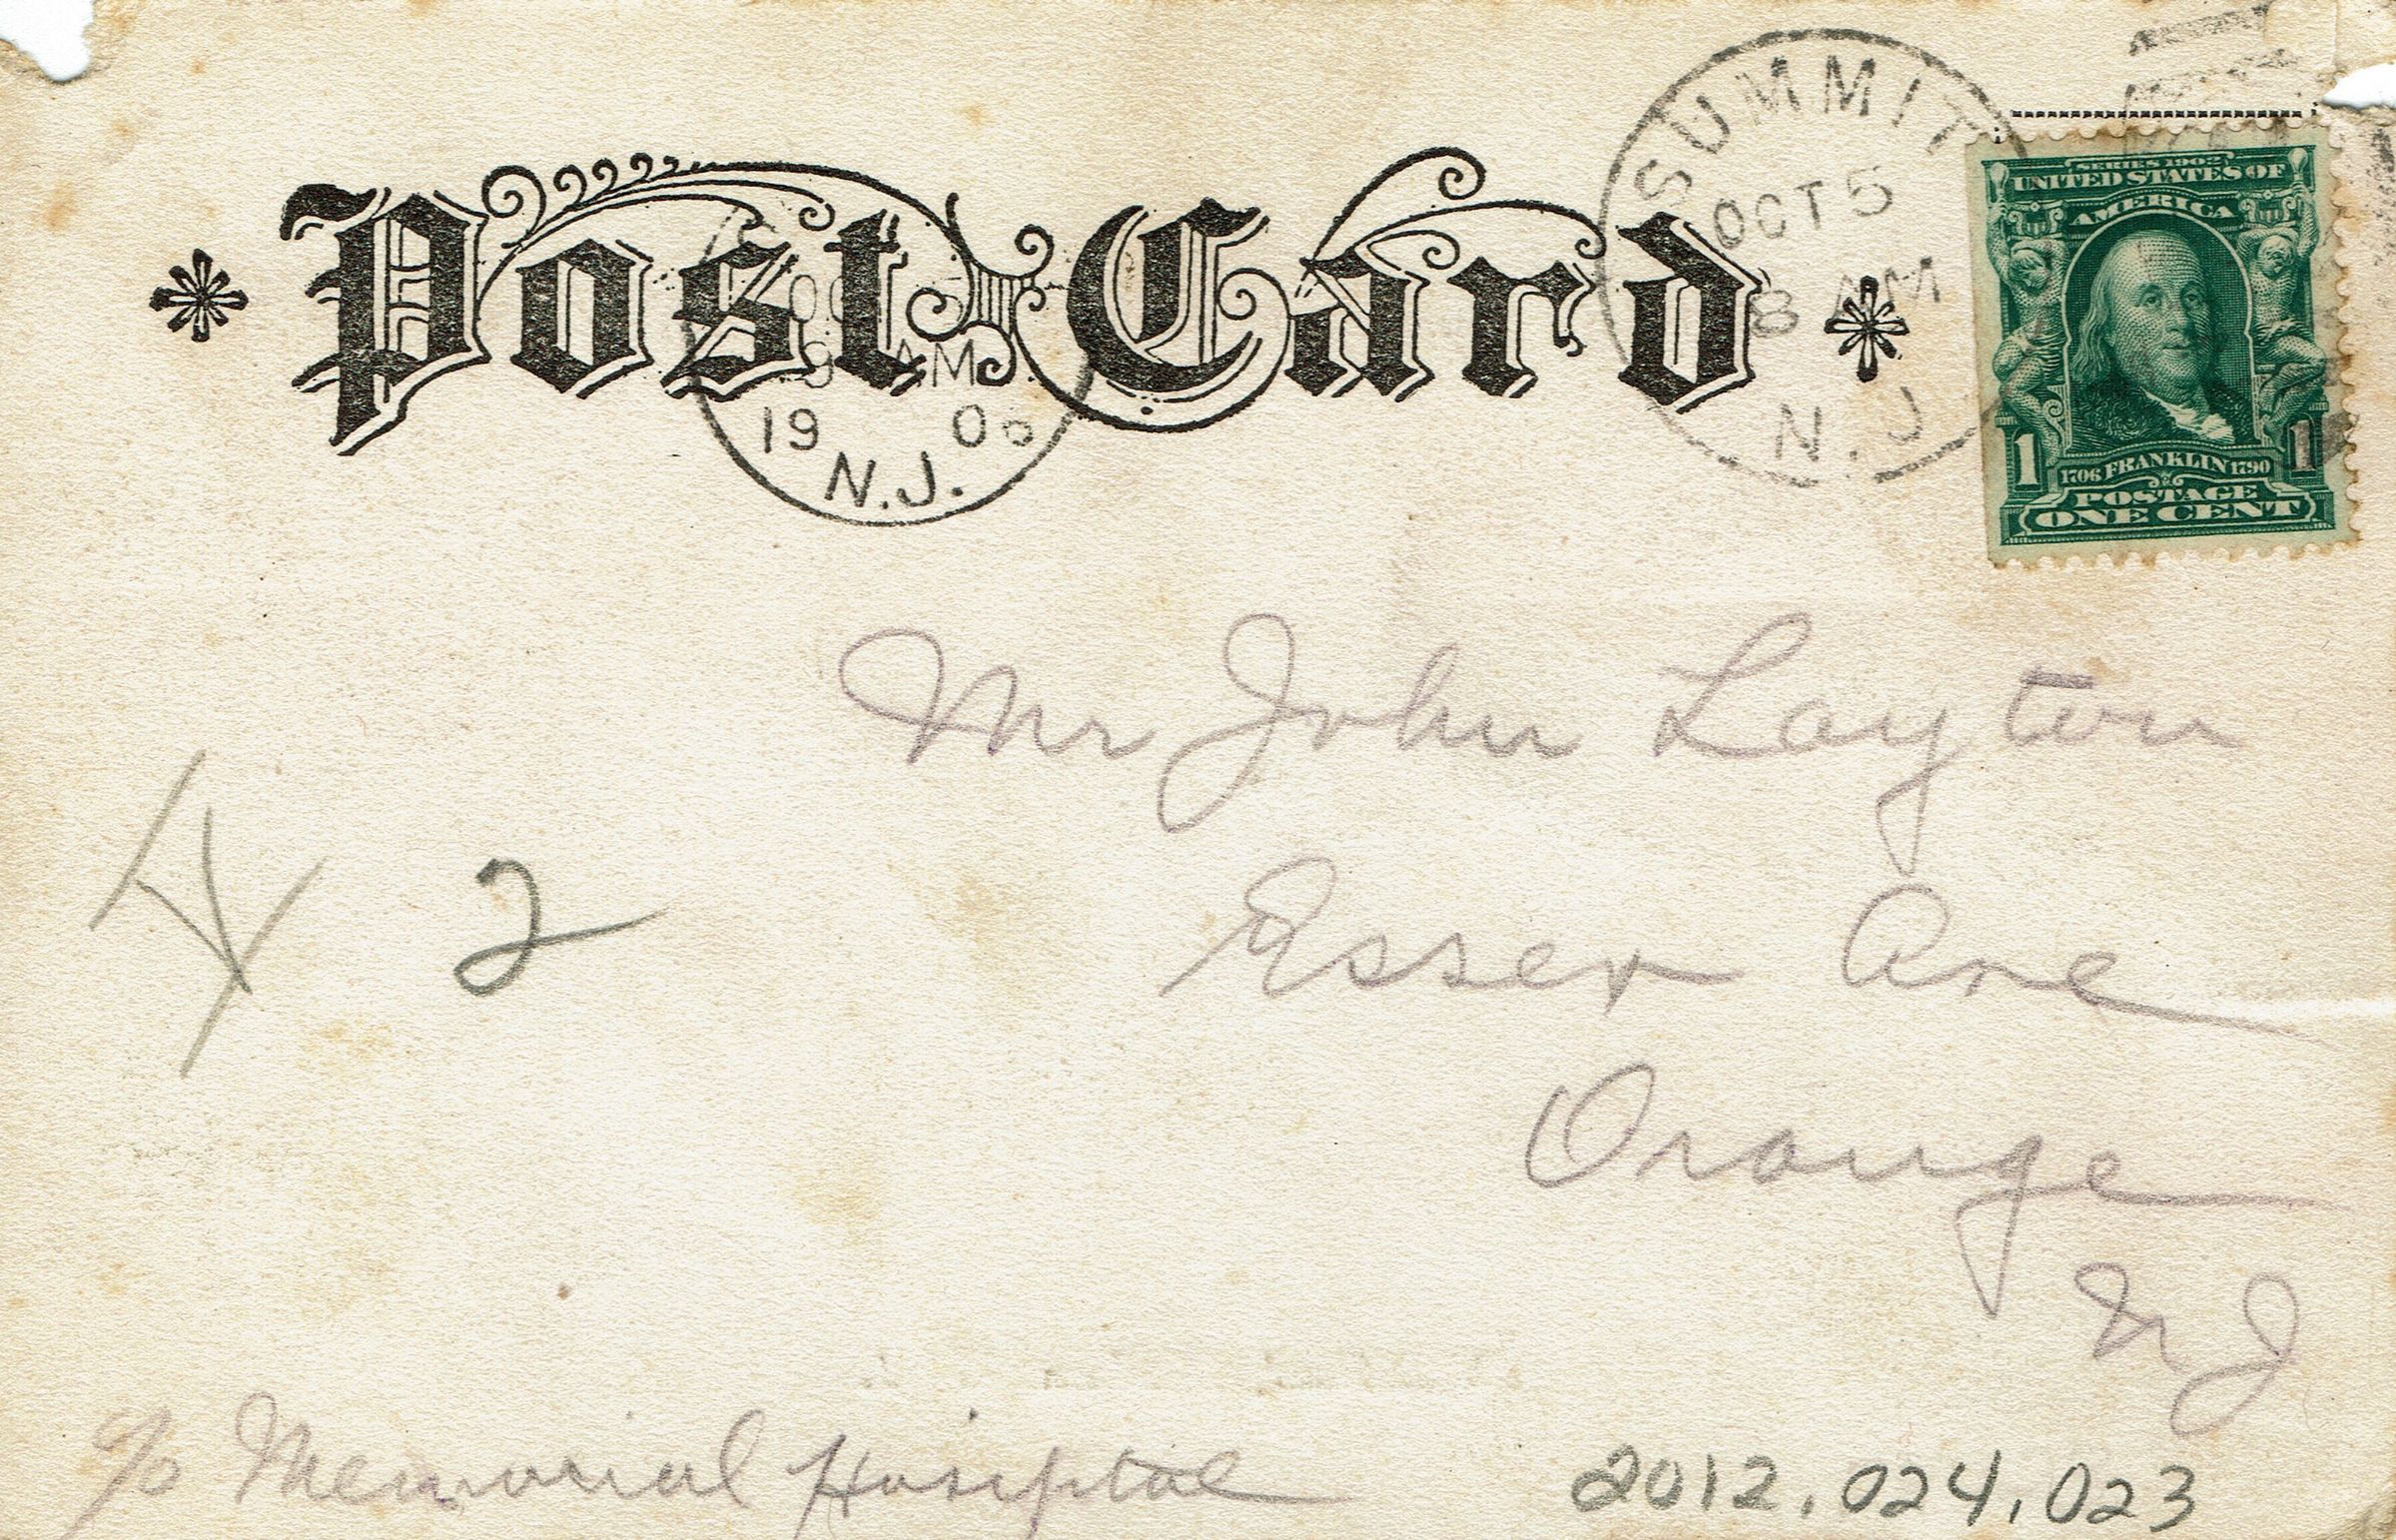 Post Card
SUMMIT
OCT 5
8 AM
N.J.
OC
9 AM
19 06
N.J.
SERIES 1902
UNITED STATES OF
AMERICA
1 1
1706 FRANKLIN 1790
POSTAGE
ONE CENT
Mr John Layton
Essex Ave
Orange
NJ
2
c/o Memorial Hosiptal
2012.024.023